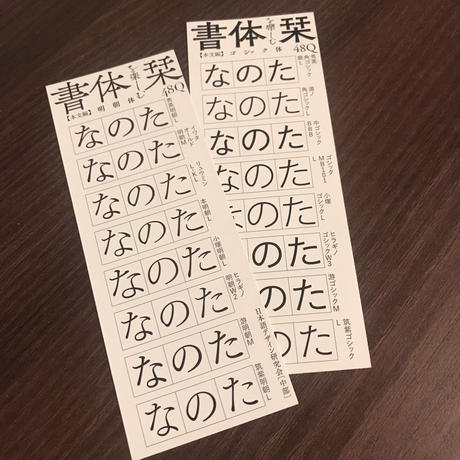 書体 栞
【本文編】明朝体 48Q
なのた 秀英明朝L
なのた イワタ
オールド
明朝M
なのた リュウミン
L-KL
なのた 本明朝L
なのた 小塚明朝L
なのた ヒラギノ
明朝W2
なのた 游明朝M
なのた 筑紫明朝L
日本語デザイン研究会[中部]
書体 栞
【本文編】ゴシック体 48Q
なのた 秀英
角ゴシック
銀L
なのた 角ゴシックL
なのた 中ゴシック
BBB
なのた ゴシック
MB101
L
なのた 小塚
ゴシックL
なのた ヒラギノ
ゴシックW3
なのた 游ゴシックM
のた 筑紫ゴシック
L